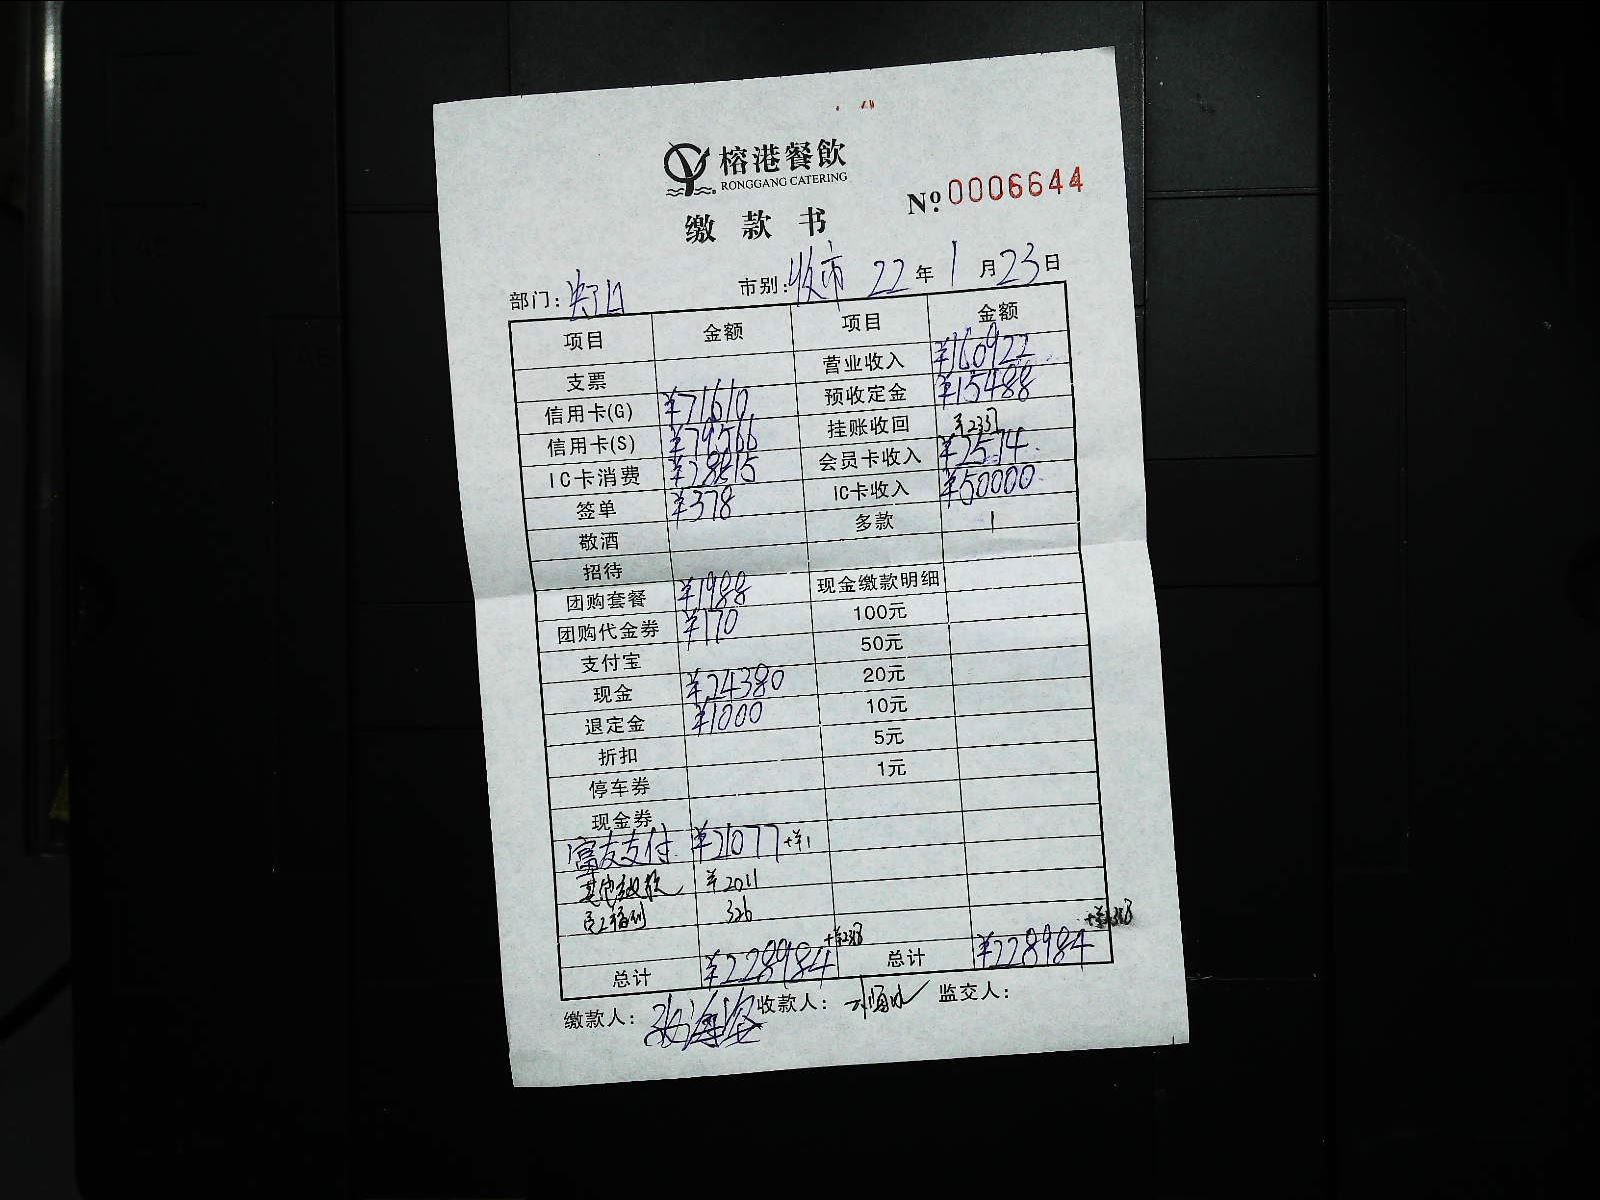 榕港餐飲
RONGGANG CATERING
No 0006644
缴款书
部门: 市别: 收市 22年1月23日
项目 金额 项目 金额
支票 营业收入 ¥160922
信用卡(G) ¥71610 预收定金 ¥15488
信用卡(S) ¥79566 挂账收回
IC卡消费 会员卡收入 ¥2574
签单 ¥378 IC卡收入 ¥50000
敬酒 多款 1
招待
团购套餐 ¥1988 现金缴款明细
团购代金券 ¥170 100元
支付宝 50元
现金 ¥24380 20元
退定金 ¥1000 10元
折扣 5元
停车券 1元
现金券
富友支付 ¥21077 +¥1
其他收款 ¥2011
员工福利 326
总计 ¥228984 总计 ¥228984
缴款人: 收款人: 监交人: